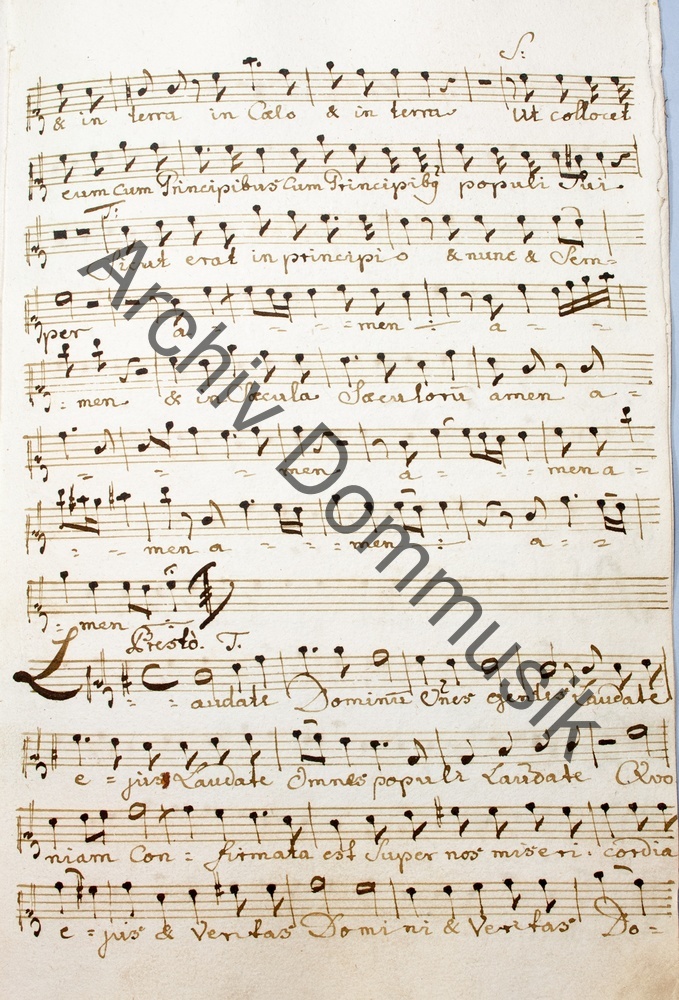 S:
& in terra in Cœlo & in terra Ut collocet
eum Cum Principibus Cum Principibq populi Sui
T:
Sicut erat in principio & nunc & Sem=
per a = = = men a = =
= men & in Sæcula Sæculorũ amen a =
= = = men a = = = men a =
= = men a = = = men a = =
= men
Presto. T.
Laudate Dominũ Oẽs gentes Laudate
e = jus Laudate Omnes populi Laudate Quo
niam Con = firmata est Super nos miseri. cordia
e = jus & Veritas Domini & Veritas Do =
Archiv Dommusik